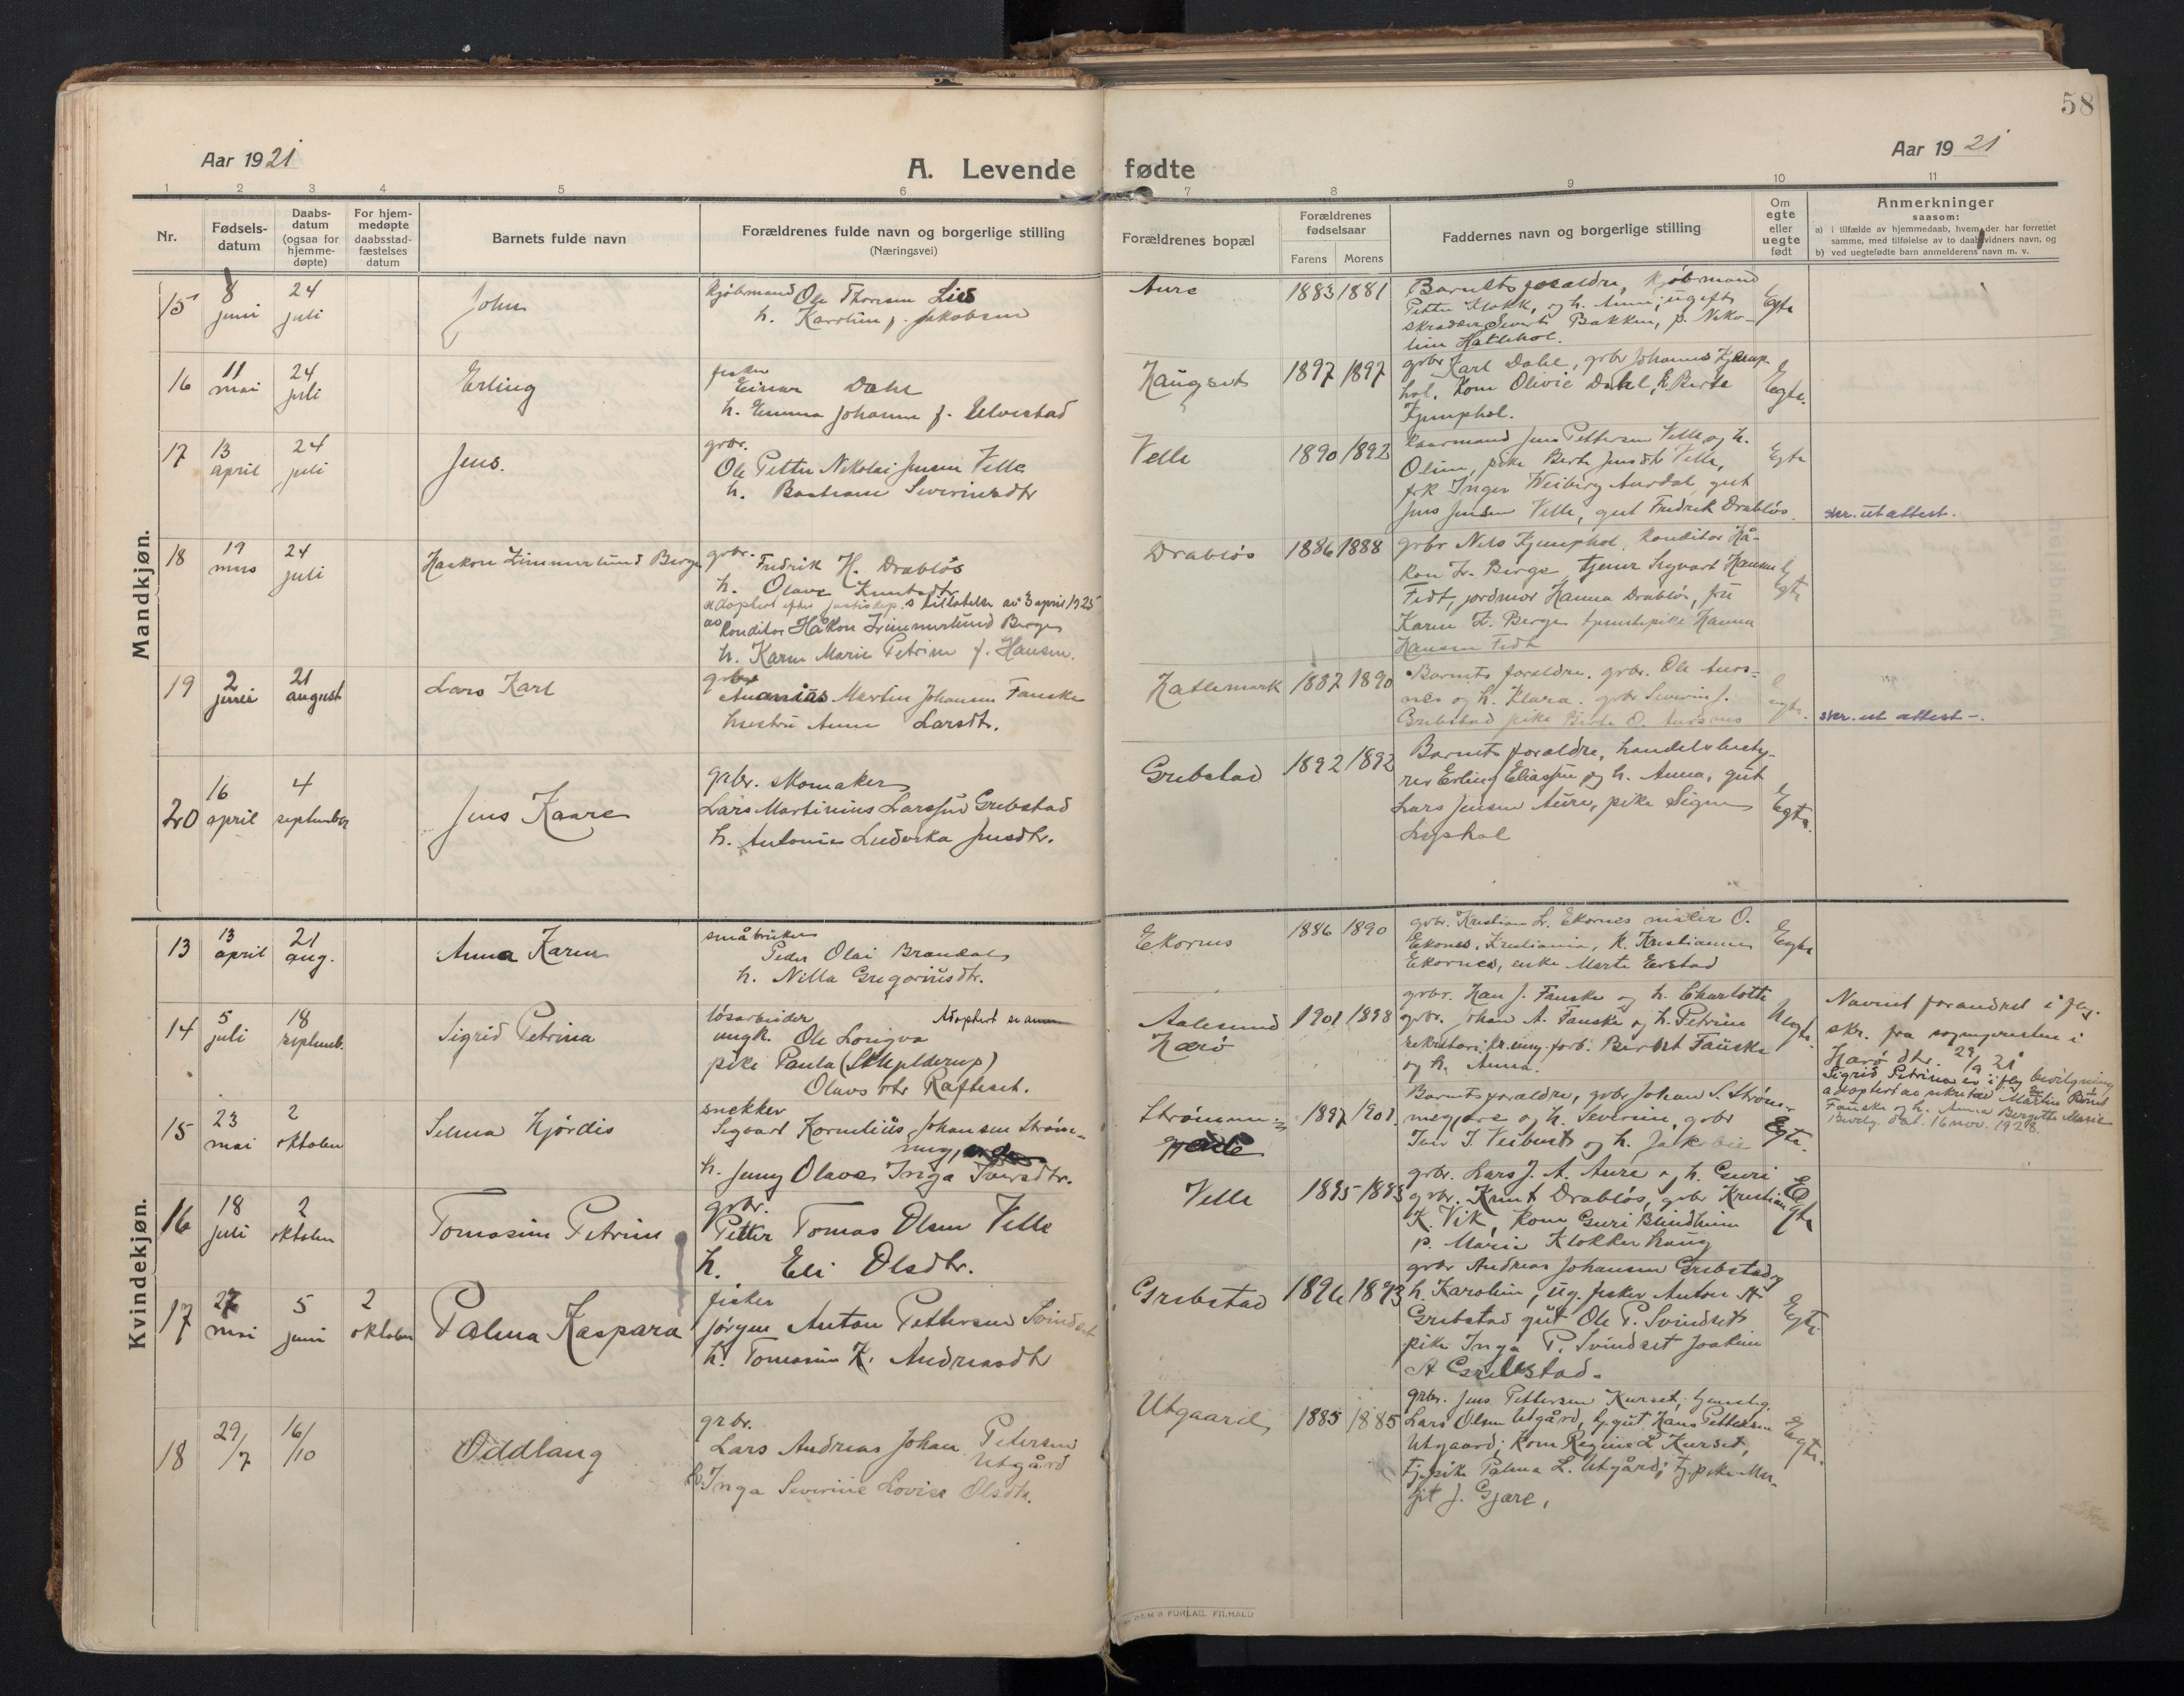 58
Aar 1921
A. Levende fødte
Aar 1921
1 2 3 4 5 6 7 8 9 10 11
Nr.
Fødsels-
datum
Daabs-
datum
(ogsaa for
hjemme-
døpte)
For hjem-
medøpte
daabsstad-
fæstelses
datum
Barnets fulde navn
Forældrenes fulde navn og borgerlige stilling
(Næringsvei)
Forældrenes bopæl
Forældrenes
fødselsaar
Farens Morens
Faddernes navn og borgerlige stilling
Om
egte
eller
uegte
født
Anmerkninger
saasom:
a) i tilfælde av hjemmedaab, hvem der har forrettet
samme, med tilføielse av to daabsvidners navn, og
b) ved uegtefødte barn anmelderens navn m. v.
Mandkjøn.
15 8 juni 24 juli
John
Kjøbmand Ole Thoresen
h. Karoline f. Jakobsen
Aure
1883 1881
Barnets forældre, Kjøbmand
Petter Klokk, og h. Anna; ugift
skrædder Sivert Bakken, p. Niko-
line Hattehol.
Egte
16 11 mai 24 juli
Erling
fisker
Einar Dahl
h. Emma Johanne f. Ulvestad
Haugset
1897 1897
grbr Karl Dahl, grbr Johannes Kjemp-
hol, Kone Olivie Dahl, k. Berte
Kjemphol.
Egte.
17 13 april 24 juli
Jens.
grbr.
Ole Petter Nikolai Jensen Velle
h. Bastiane Severinsdtr
Velle
1890 1892
Kaarmand Jens Pettersen Velle og h.
Oline, pike Berte Jensdtr Velle,
frk Inger Weiberg Aurdal, gut
Jens Jensen Velle, gut Fredrik Drabløs.
Egte
skr. ut attest.
18 19 mars 24 juli
Haakon Zimmerlund Berge
grbr. Fredrik H. Drabløs
h. Olave Knutsdtr
adoptert efter justisdep.s tillatelse av 3 april 1925
av Konditor Håkon Zimmerlund Berge
h. Karen Marie Petrine f. Hansen.
Drabløs
1886 1888
grbr Nils Kjemphol, Konditor Hå-
kon Z. Berge tjener Sigvart Hansen
Fedt, jordmor Hanna Drabløs, fru
Karen Z. Berge tjenestepike Hanna
Hansen Fedt
Egte
19 2 juni 21 august
Lars Karl
grbr
Ananias Martin Johansen Fauske
hustru Anne Larsdtr.
Hattemark
1887 1890
Barnets forældre, grbr. Ole Aurs-
nes og h. Klara. grbr Severin J.
Grebstad pike Berte O. Aursnes
egte.
skr. ut attest -.
20 16 april 4 september
Jens Kaare
grbr. skomaker
Lars Martinius Larssen Grebstad
h. Antonie Ludvika Jensdtr.
Grebstad
1892 1892
Barnets forældre, handelsbesty-
rer Erling Eliassen og h. Anna, gut
Lars Jensen Aure, pike Signe
Lyshol
Egte.
Kvindekjøn.
13 13 april 21 aug.
Anna Karen
småbruker
Peder Olai Brandal
h. Nilla Gregoriusdtr.
Ekornes
1886 1890
grbr. Kristian Lr. Ekornes maler O.
Ekornes, Kristiania, K. Kristianne
Ekornes, enke Marte Eerstad
Egte
14 5 juli 18 septemb.
Sigrid Petrina
løsarbeider Adoptert se anm
ungk. Ole Longva
pike Paula (Skjelderup)
Olavsdtr Rafteset.
Aalesund
Harø
1901 1898
grbr. Hans J. Fauske og h. Charlotte
grbr. Johan A. Fauske og h. Petrine
sekretær i kr. ung. forb. Bernt Fauske
og h. Anna.
Uegte.
Navnet forandret ifølg.
skr. fra sognepresten i
Harø dtr. 29/9 21
Sigrid Petrina er iflg bevilgning
adoptert av sekretær Martin Bernt
Fauske og h. Anna Bergitte Marie
Bevilg. dat. 16 nov. 1928.
15 23 mai 2 oktober
Selma Hjørdis
snekker
Sigvart Kornelius Johansen Strøm-
meg
h. Jenny Olave Inga Iversdtr.
Strømme-
gjerde
1897 1901.
Barnets forældre, grbr Johan S. Strøm-
megjære og h. Severine, grbr
Iver I. Veibust og h. Jakobie
Egte.
16 18 juli 2 oktober
Tomasine Petrine
grbr.
Petter Tomas Olsen Velle
h. Eli Olsdtr.
Velle
1895 1893
grbr. Lars J. A. Aure og h. Guri
grbr. Knut Drabløs, grbr Kristian
K. Vik, kone Guri Blindheim
p. Maria Klokkerhaug
Egte
17 27 mai 5 juni 2 oktober
Palma Kaspara
fisker
Jørgen Anton Pettersen Svindset
h. Tomasine K. Andreasdtr
Grebstad
1896 1893
grbr Andreas Johansen Grebstad og
h. Karoline, ug. fisker Anton A
Grebstad gut Ole P. Svindset
pike Inga P. Svindset Joakim
A Grebstad.
Egte.
18 29/7 16/10
Oddlaug
grbr.
Lars Andreas Johan Petersen
Utgård
h. Inga Severine Lovise Olsdtr.
Utgaard
1885 1885
grbr. Jens Pettersen Kurset, tjenestg.
Lars Olsen Utgård, tj. gut Hans Pettersen
Utgaard; Kone Regine L Kurset,
tj. pike Palma L. Utgård; tj. pike Mar-
git J. Gjære,
Egte.
FORLAG. FR.HALD